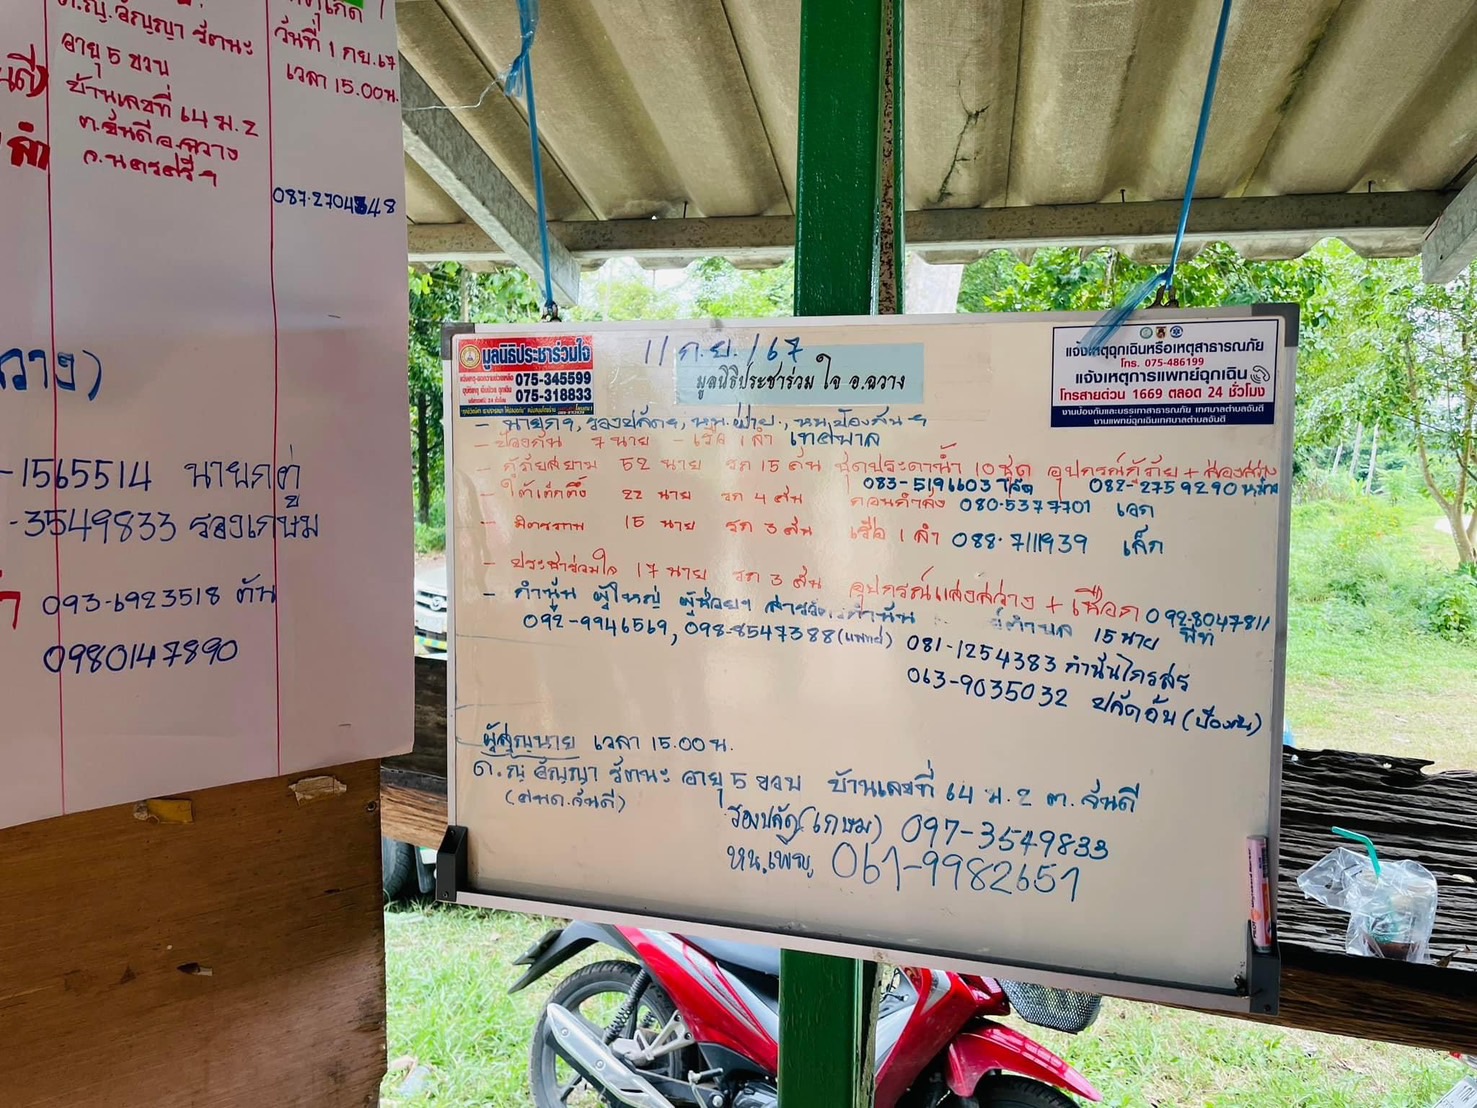 ด.ญ. อัญญา รัตนะ
อายุ 5 ขวบ
บ้านเลขที่ 64 ม. 2
ต.จันดี อ.ฉวาง
จ.นครศรีฯ
วันที่ 1 กย. 67
เวลา 15.00 น.
087-2704348
ลำ
ฉวาง)
-1565514 นายกตู่
-3549833 รองเกษม
093-6923518 ตัน
0980147890
มูลนิธิประชาร่วมใจ
075-345599
075-318833
11 ก.ย. / 67
มูลนิธิประชาร่วมใจ อ.ฉวาง
แจ้งเหตุฉุกเฉินหรือเหตุสาธารณภัย
โทร. 075-486199
แจ้งเหตุการแพทย์ฉุกเฉิน
โทรสายด่วน 1669 ตลอด 24 ชั่วโมง
งานป้องกันและบรรเทาสาธารณภัย เทศบาลตำบลจันดี
งานแพทย์ฉุกเฉินเทศบาลตำบลจันดี
- นายกฯ, รองปลัดฯ, หน.ฝ่าย, หน.ป้องกันฯ
- ป้องกัน 7 นาย - เรือ 1 ลำ เทศบาล
- กู้ภัยสยาม 52 นาย รถ 15 คัน ชุดประดาน้ำ 10 ชุด อุปกรณ์กู้ภัย + ส่องสว่าง
083-5191603 082-2759290
- ใต้เต็กตึ๊ง 22 นาย รถ 4 คัน 080-5377701 เอก
- มิตรภาพ 15 นาย รถ 3 คัน เรือ 1 ลำ 088-7111939 เล็ก
- ประชาร่วมใจ 17 นาย รถ 3 คัน อุปกรณ์แสงสว่าง + เชือก 092-8047811
- กำนัน ผู้ใหญ่ ผู้ช่วยฯ สารวัตรกำนัน ตำบล 15 นาย
092-9946569, 098-8547388 (แพทย์) 081-1254383 กำนันไกรสร
063-9035032 ปลัดอ้น (ป้องกัน)
ผู้สูญหาย เวลา 15.00 น.
ด.ญ อัญญา รัตนะ อายุ 5 ขวบ บ้านเลขที่ 64 ม. 2 ต. จันดี
(ศพด.จันดี)
รองปลัด (เกษม) 097-3549833
หน.เพ็ญ 061-9982651